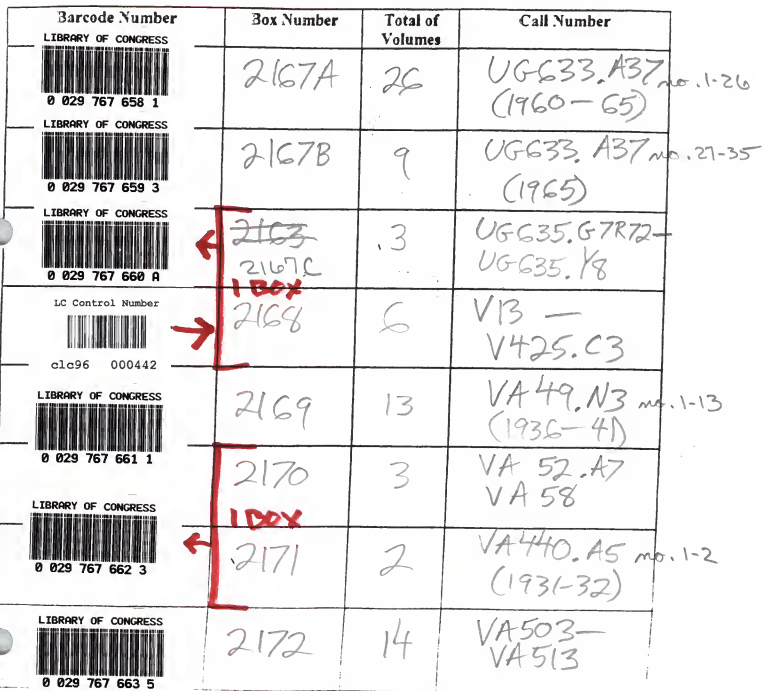 Barcode Number Box Number Total of Volumes Call Number
LIBRARY OF CONGRESS
0 029 767 658 1
2167A 26 UG633.A37 no.1-26
(1960-65)
LIBRARY OF CONGRESS
0 029 767 659 3
2167B 9 UG633.A37 no.27-35
(1965)
LIBRARY OF CONGRESS
0 029 767 660 A
2163 3 UG635.G7R72-
2167C UG635.Y8
1 BOX
LC Control Number
clc96 000442
2168 6 V13 —
V425.C3
LIBRARY OF CONGRESS
0 029 767 661 1
2169 13 VA49.N3 no.1-13
(1936-41)
2170 3 VA 52.A7
VA 58
1 BOX
LIBRARY OF CONGRESS
0 029 767 662 3
2171 2 VA440.A5 no.1-2
(1931-32)
LIBRARY OF CONGRESS
0 029 767 663 5
2172 14 VA503-
VA513